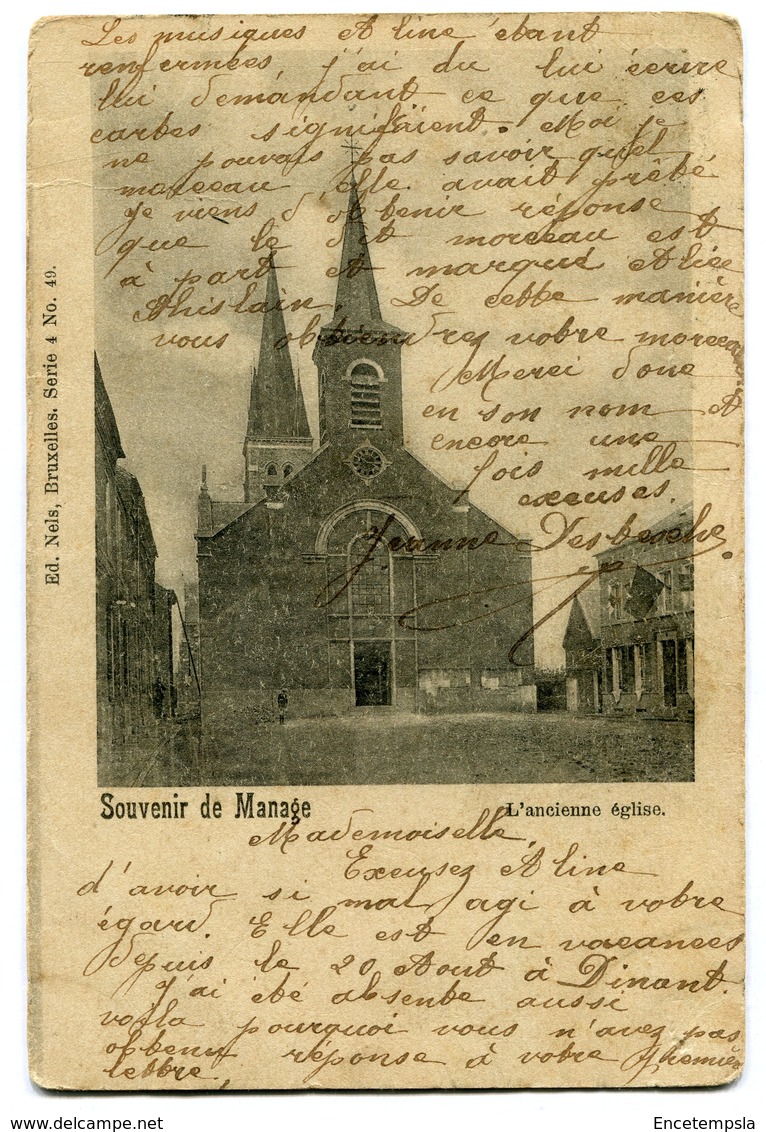 Les musiques Aline étant
renfermées j'ai du lui écrire
lui demandant ce que ces
cartes signifaient. Moi je
ne pouvais pas savoir quel
morceau elle avait prêté
Je viens d'obtenir réponse
que le dit morceau est
à part et marqué Alice
Ghislain. De cette manière
vous obtiendrez votre morceau
Merci donc
en son nom et
encore une
fois mille
excuses.
Jeanne Desbesche
Ed. Nels, Bruxelles. Serie 4 No. 49.
Souvenir de Manage
L'ancienne église.
Mademoiselle,
Excusez Aline
d'avoir si mal agi à votre
égard. Elle est en vacances
depuis le 20 Aout à Dinant.
J'ai été absente aussi
voila pourquoi vous n'avez pas
obtenu réponse à votre première
lettre,
delcampe.net
Encetempsla